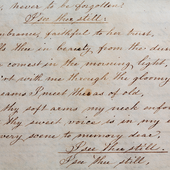 never to be forgotten!
I see thee still:
embrance, faithful to her trust,
ls thee in beauty, from the dus
comest in the morning light,
ist with me through the gloomy
eams I meet thee as of old,
thy soft arms my neck infor
thy sweet voice is in my e
very scene to memory dear,
I see thee still.
I see thee still,